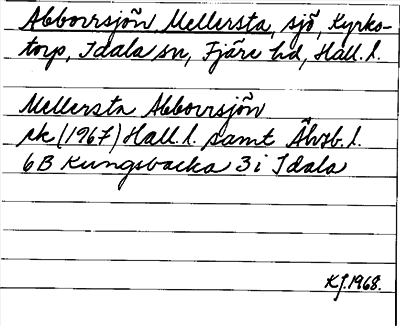 Abborrsjön Mellersta, sjö, Kyrko-
torp, Idala sn, Fjäre hd, Hall. l.
Mellersta Abborrsjön
ek (1967) Hall. l. samt Älvsb. l.
6B Kungsbacka 3i Idala
KJ. 1968.